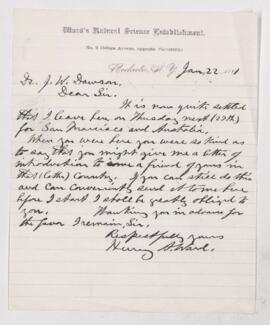 Ward's Natural Science Establishment.
No. 2 College Avenue, opposite University.
Rochester, N. Y. Jan. 22
Dr. J. W. Dawson,
Dear Sir.
It is now quite settled
that I leave here on Thursday next (27th)
for San Francisco and Australia.
When you were here you were so kind as
to say that you might give me a letter of
introduction to some a friend of yours in
that (latter) Country. If you can still do this
and can conveniently send it to me here
before I start I shall be greatly obliged to
you. Thanking you in advance for
the favor I remain, Sir,
Respectfully yours
Henry A. Ward.